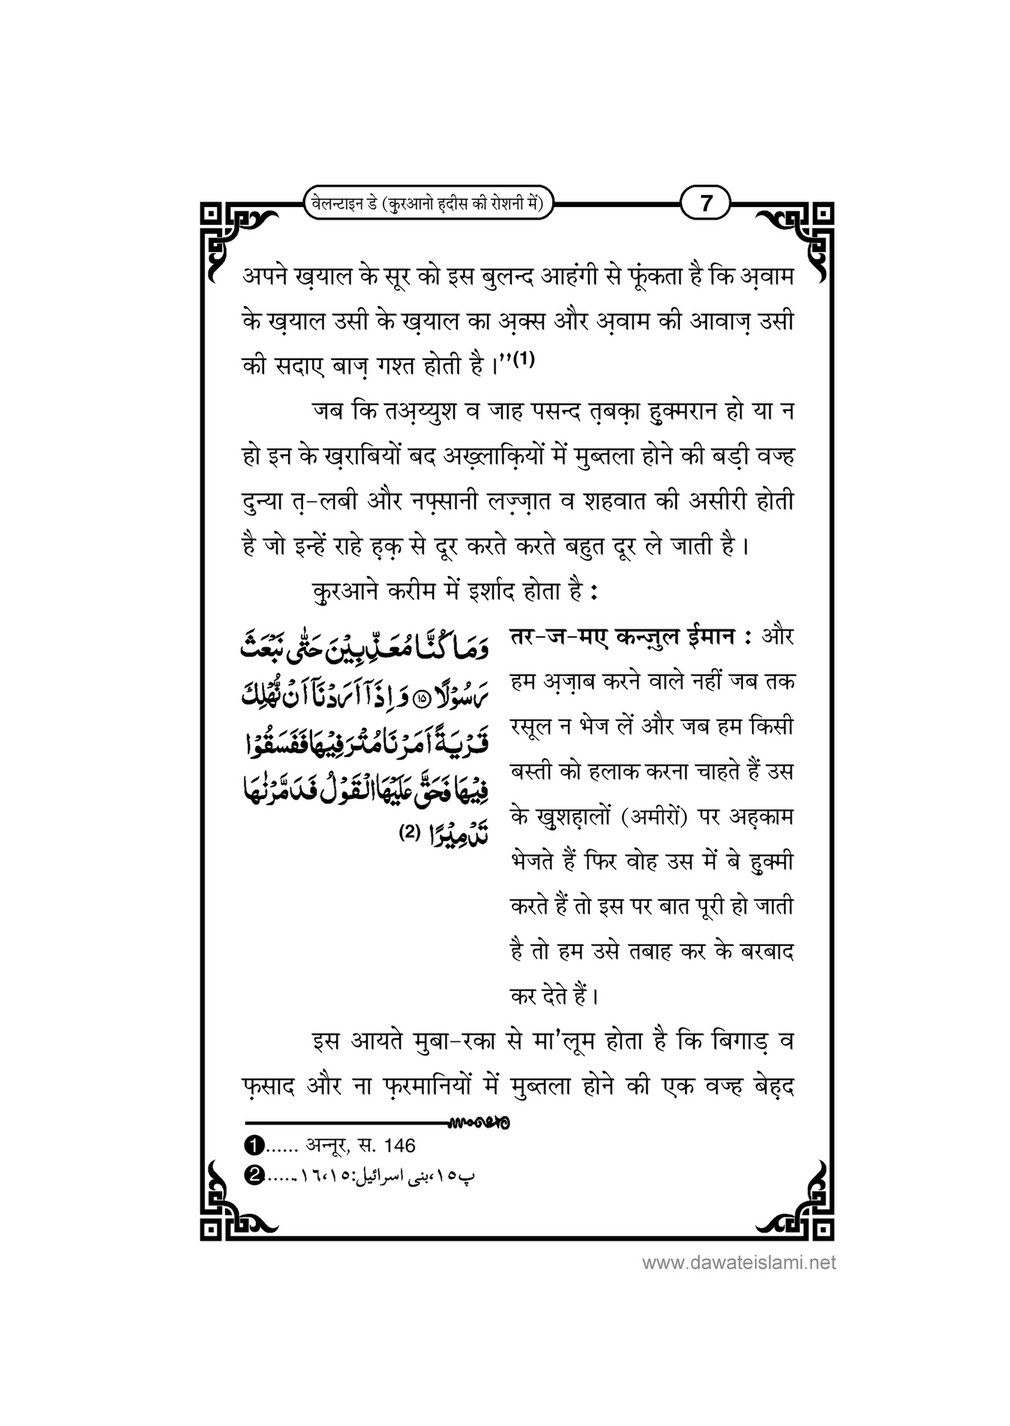 वेलन्टाइन डे (क़ुरआनो ह़दीस की रोशनी में)
7
अपने ख़याल के सूर को इस बुलन्द आहंगी से फूंकता है कि अ़वाम
के ख़याल उसी के ख़याल का अ़क्स और अ़वाम की आवाज़ उसी
की सदाए बाज़ गश्त होती है ।’’(1)
जब कि तअ़य्युश व जाह पसन्द त़बक़ा ह़ुक्मरान हो या न
हो इन के ख़राबियों बद अख़्लाक़ियों में मुब्तला होने की बड़ी वज्ह
दुन्या त़-लबी और नफ़्सानी लज़्ज़ात व शहवात की असीरी होती
है जो इन्हें राहे ह़क़ से दूर करते करते बहुत दूर ले जाती है ।
क़ुरआने करीम में इर्शाद होता है :
وَمَا كُنَّا مُعَذِّبِيْنَ حَتّٰى نَبْعَثَ
رَسُوْلًا ﴿۱۵﴾ وَ اِذَاۤ اَرَدْنَاۤ اَنْ نُّهْلِكَ
قَرْيَةً اَمَرْنَا مُتْرَفِيْهَا فَفَسَقُوْا
فِيْهَا فَحَقَّ عَلَيْهَا الْقَوْلُ فَدَمَّرْنٰهَا
تَدْمِيْرًا (2)
तर-ज-मए कन्ज़ुल ईमान : और
हम अ़ज़ाब करने वाले नहीं जब तक
रसूल न भेज लें और जब हम किसी
बस्ती को हलाक करना चाहते हैं उस
के ख़ुशह़ालों (अमीरों) पर अह़काम
भेजते हैं फिर वोह उस में बे ह़ुक्मी
करते हैं तो इस पर बात पूरी हो जाती
है तो हम उसे तबाह कर के बरबाद
कर देते हैं ।
इस आयते मुबा-रका से मा'लूम होता है कि बिगाड़ व
फ़साद और ना फ़रमानियों में मुब्तला होने की एक वज्ह बेह़द
1...... अन्नूर, स. 146
2...... پ۱۵،بنی اسرائیل:۱۶،۱۵
www.dawateislami.net